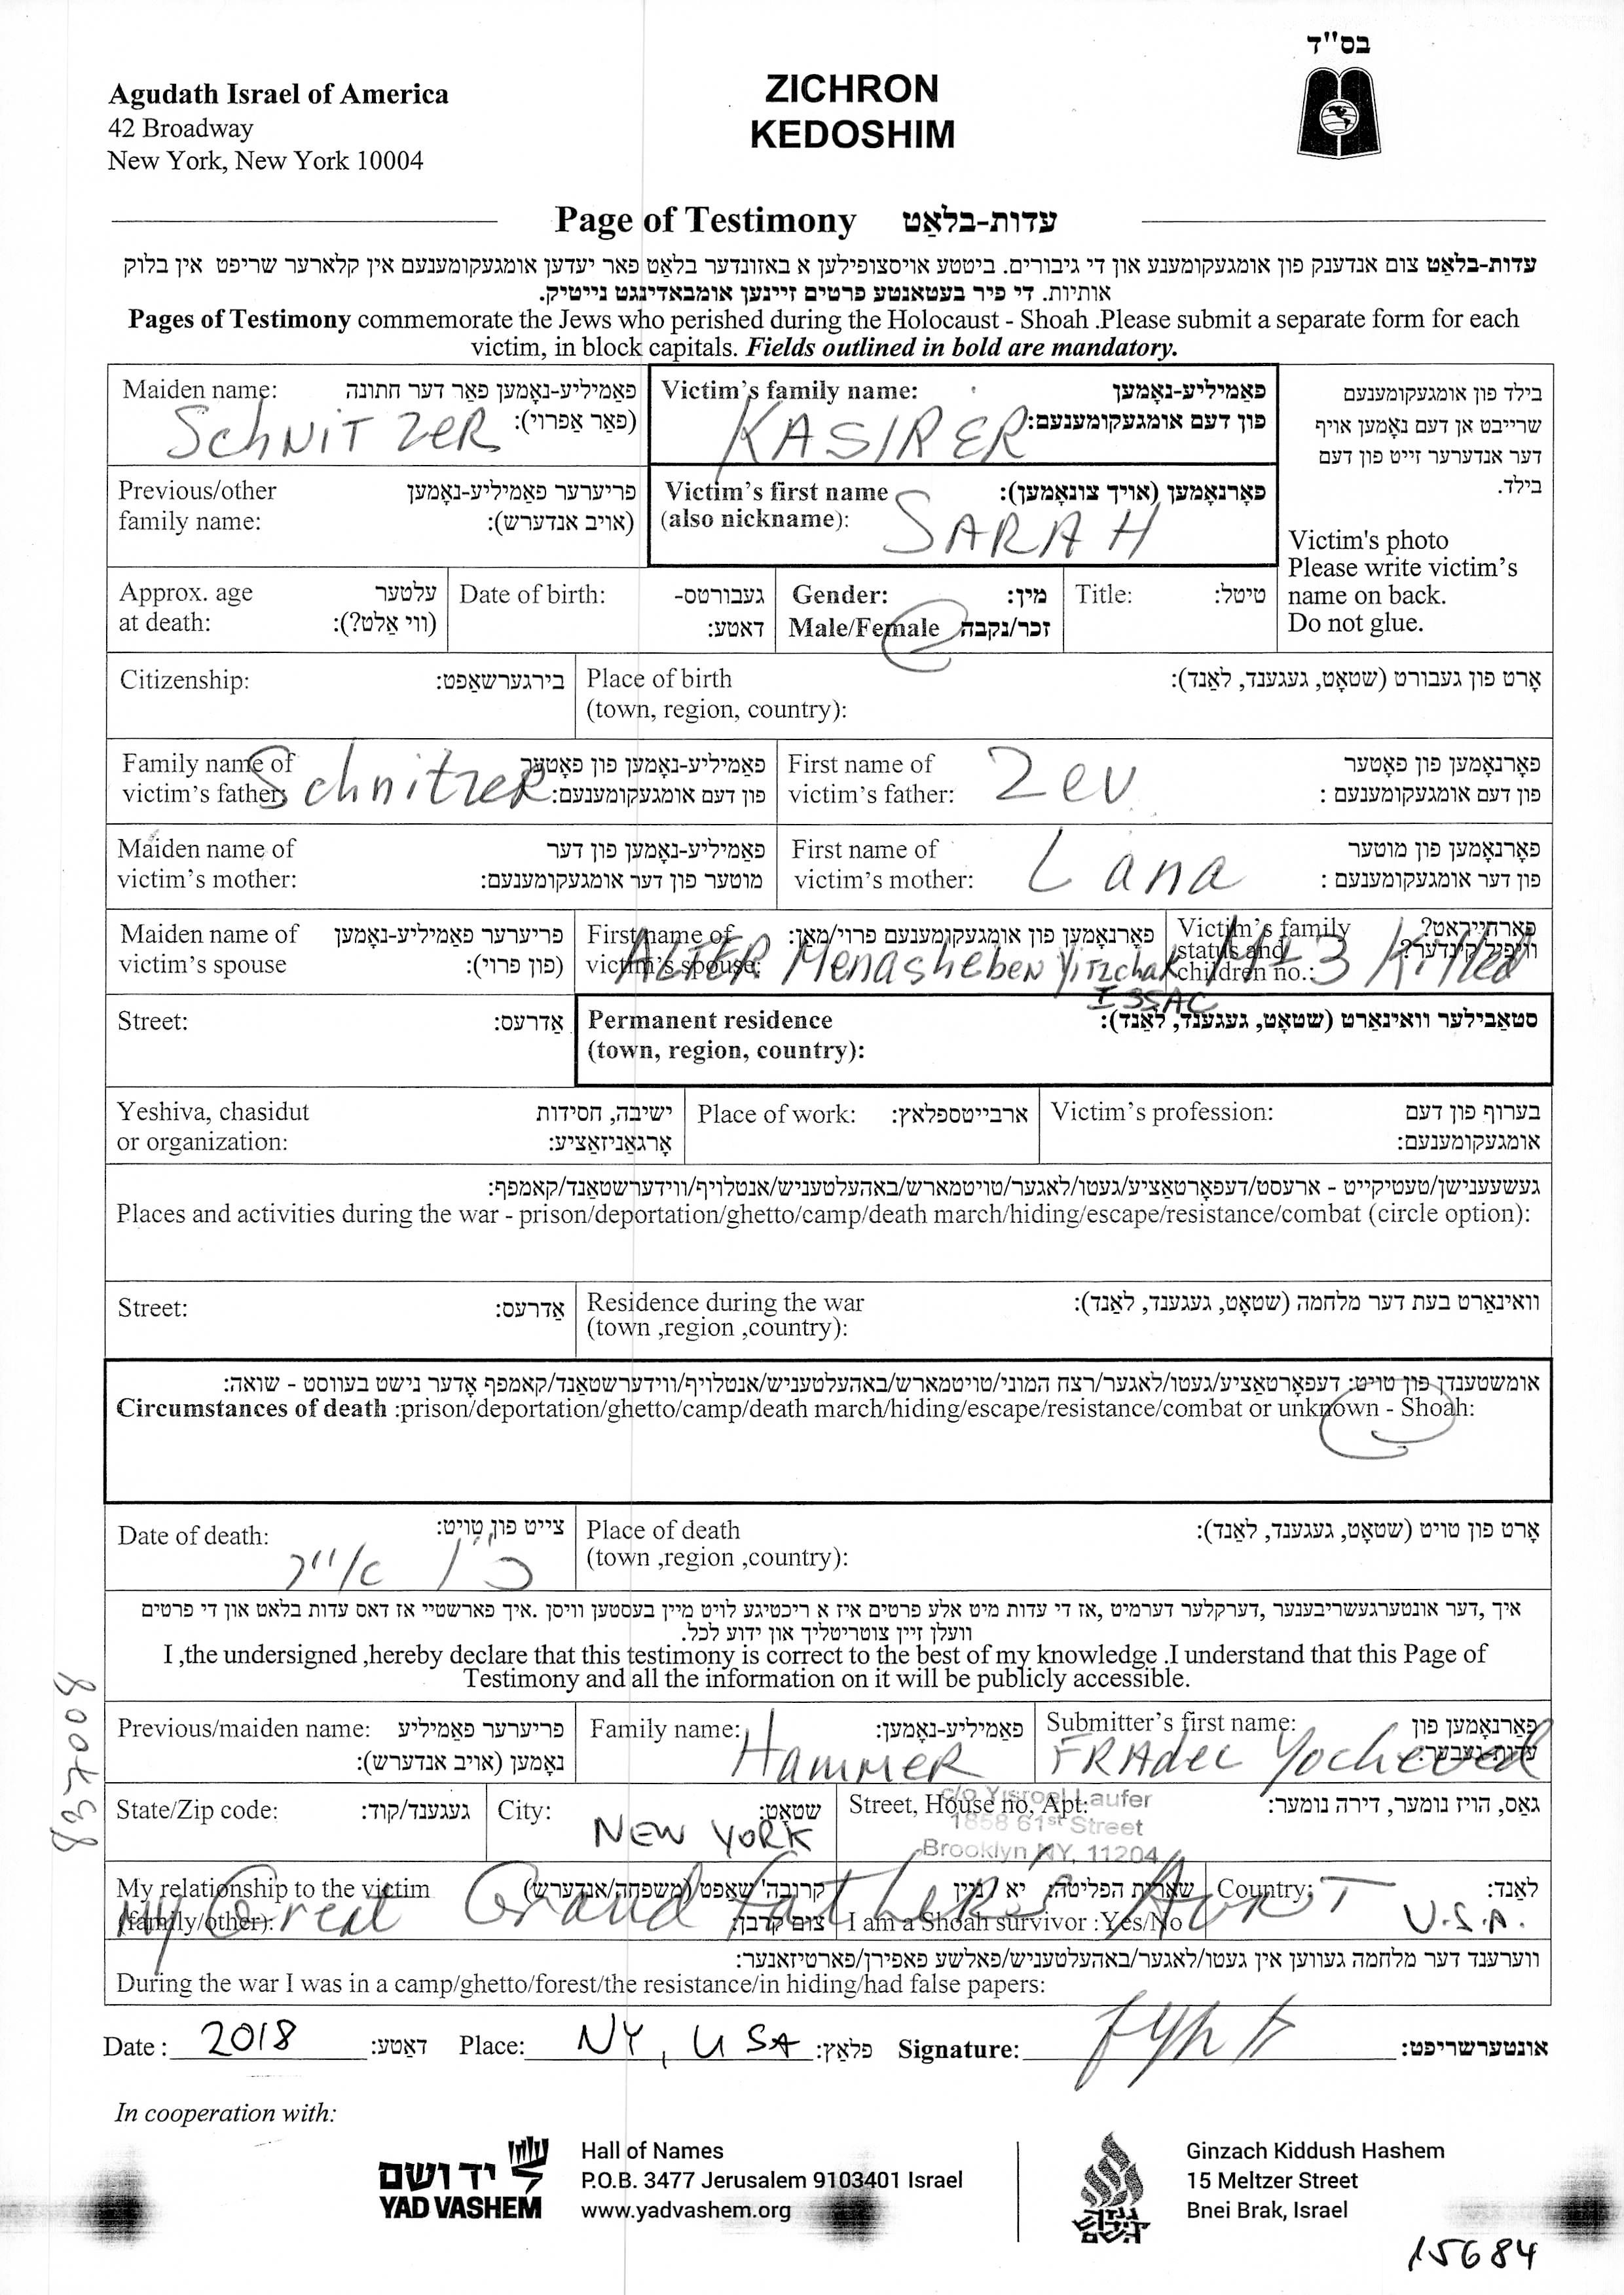 בס"ד
Agudath Israel of America
42 Broadway
New York, New York 10004
ZICHRON
KEDOSHIM
Page of Testimony עדות-בלאַט
עדות-בלאַט צום אנדענק פון אומגעקומענע און די גיבורים. ביטטע אויסצופילען א באזונדער בלאט פאר יעדען אומגעקומענעם אין קלארער שריפט אין בלוק
אותיות. די פיר בעטאנטע פרטים זיינען אומבאדינגט נייטיק.
Pages of Testimony commemorate the Jews who perished during the Holocaust - Shoah .Please submit a separate form for each
victim, in block capitals. Fields outlined in bold are mandatory.
Maiden name: פאַמיליע-נאָמען פאַר דער חתונה
(פאַר אַפרוי):
SCHNITZER
Victim's family name: פאַמיליע-נאָמען
פון דעם אומגעקומענעם:
KASIRER
בילד פון אומגעקומענעם
שרייבט אן דעם נאָמען אויף
דער אנדערער זייט פון דעם
בילד.
Victim's photo
Please write victim's
name on back.
Do not glue.
Previous/other פריערער פאַמיליע-נאָמען
family name: (אויב אנדערש):
Victim's first name פאָרנאָמען (אויך צונאָמען):
(also nickname):
SARAH
Approx. age עלטער
at death: (ווי אַלט?):
Date of birth: געבורטס-
דאטע:
Gender: מין:
Male/Female זכר/נקבה
Title: טיטל:
Citizenship: בירגערשאַפט:
Place of birth אָרט פון געבורט (שטאָט, געגענד, לאַנד):
(town, region, country):
Family name of פאַמיליע-נאָמען פון פאָטער
victim's father: פון דעם אומגעקומענעם:
Schnitzer
First name of פאָרנאָמען פון פאָטער
victim's father: פון דעם אומגעקומענעם :
Zev
Maiden name of פאַמיליע-נאָמען פון דער
victim's mother: מוטער פון דער אומגעקומענעם:
First name of פאָרנאָמען פון מוטער
victim's mother: פון דער אומגעקומענעם :
Lana
Maiden name of פריערער פאַמיליע-נאָמען
victim's spouse (פון פרוי):
First name of פאָרנאָמען פון אומגעקומענעם פרוי/מאַן:
victim's spouse:
ALTER Menashe ben Yitzchak
ISSAC
Victim's family פארהייראט?
status and וויפיל קינדער?
children no.:
M+3 Killed
Street: אַדרעס:
Permanent residence סטאַבילער וואוינארט (שטאָט, געגענד, לאַנד):
(town, region, country):
Yeshiva, chasidut ישיבה, חסידות
or organization: אָרגאַניזאַציע:
Place of work: ארבייטספלאץ:
Victim's profession: בערוף פון דעם
אומגעקומענעם:
געשעענישן/טעטיקייט - ארעסט/דעפאָרטאַציע/געטו/לאגער/טויטמארש/באהעלטעניש/אנטלויף/ווידערשטאַנד/קאמפף:
Places and activities during the war - prison/deportation/ghetto/camp/death march/hiding/escape/resistance/combat (circle option):
Street: אַדרעס:
Residence during the war וואוינארט בעת דער מלחמה (שטאָט, געגענד, לאַנד):
(town ,region ,country):
אומשטענדן פון טויט: דעפאָרטאַציע/געטו/לאגער/רצח המוני/טויטמארש/באהעלטעניש/אנטלויף/ווידערשטאַנד/קאמפף אָדער נישט בעווסט - שואה:
Circumstances of death :prison/deportation/ghetto/camp/death march/hiding/escape/resistance/combat or unknown - Shoah:
Date of death: צייט פון טויט:
אייר
Place of death אָרט פון טויט (שטאָט, געגענד, לאַנד):
(town ,region ,country):
איך ,דער אונטערגעשריבענער ,דערקלער דערמיט ,אז די עדות מיט אלע פרטים איז א ריכטיגע לויט מיין בעסטען וויסן .איך פארשטיי אז דאס עדות בלאט און די פרטים
וועלן זיין צוטריטליך און ידוע לכל.
I ,the undersigned ,hereby declare that this testimony is correct to the best of my knowledge .I understand that this Page of
Testimony and all the information on it will be publicly accessible.
Previous/maiden name: פריערער פאַמיליע
נאָמען (אויב אנדערש):
Family name: פאַמיליע-נאָמען:
Hammer
Submitter's first name: פאָרנאָמען פון
עדות-געבער:
FRAdeL Yocheved
State/Zip code: געגענד/קוד:
City: שטאָט:
NEW YORK
Street, House no, Apt: גאַס, הויז נומער, דירה נומער:
c/o Yisroel Laufer
1858 61st Street
Brooklyn NY, 11204
My relationship to the victim קרובה' שאַפט (משפחה/אנדערש)
(family/other): צום קרבן:
My Great Grand Father's AUNT
שארית הפליטה: יא / ניין
I am a Shoah survivor :Yes/No
Country: לאַנד:
U.S.A.
ווערענד דער מלחמה געווען אין געטו/לאגער/באהעלטעניש/פאלשע פאפירן/פארטיזאנער:
During the war I was in a camp/ghetto/forest/the resistance/in hiding/had false papers:
Date : 2018 דאטע: Place: NY, USA פלאַץ: Signature: אונטערשריפט:
In cooperation with:
יד ושם
YAD VASHEM
Hall of Names
P.O.B. 3477 Jerusalem 9103401 Israel
www.yadvashem.org
גנזך קידוש השם
Ginzach Kiddush Hashem
15 Meltzer Street
Bnei Brak, Israel
15684